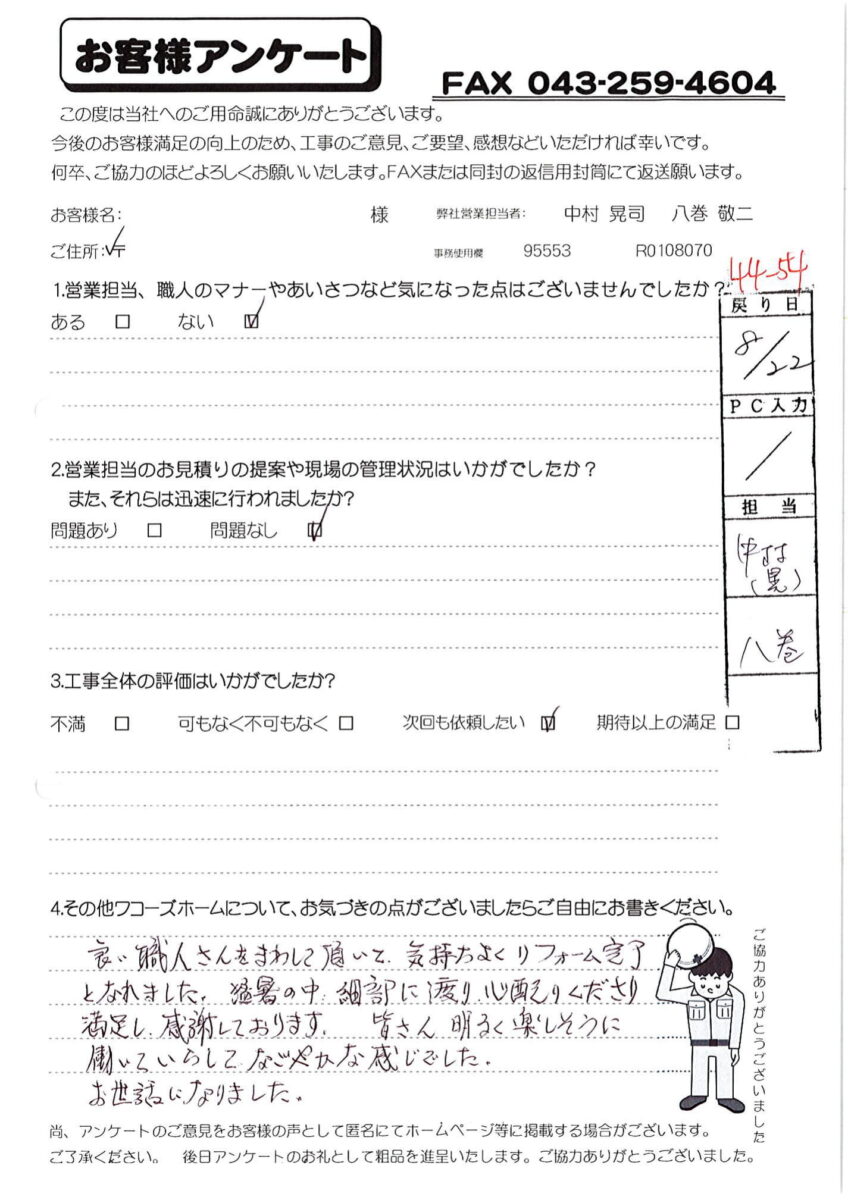 お客様アンケート
FAX 043-259-4604
この度は当社へのご用命誠にありがとうございます。
今後のお客様満足の向上のため、工事のご意見、ご要望、感想などいただければ幸いです。
何卒、ご協力のほどよろしくお願いいたします。FAXまたは同封の返信用封筒にて返送願います。
お客様名: 様 弊社営業担当者: 中村 晃司 八巻 敬二
ご住所:〒 事務使用欄 95553 R0108070
44-54
1.営業担当、職人のマナーやあいさつなど気になった点はございませんでしたか?
ある □ ない ☑
戻り日
8/22
PC入力
/
2.営業担当のお見積りの提案や現場の管理状況はいかがでしたか?
また、それらは迅速に行われましたか?
問題あり □ 問題なし ☑
担当
中村
(晃)
八巻
3.工事全体の評価はいかがでしたか?
不満 □ 可もなく不可もなく □ 次回も依頼したい ☑ 期待以上の満足 □
4.その他ワコーズホームについて、お気づきの点がございましたらご自由にお書きください。
良い職人さんをまわして頂いて、気持ちよくリフォーム完了
となれました。猛暑の中、細部に渡り、心配りくださり
満足し、感謝しております。 皆さん明るく楽しそうに
働いていらして、なごやかな感じでした。
お世話になりました。
ご協力ありがとうございました
尚、アンケートのご意見をお客様の声として匿名にてホームページ等に掲載する場合がございます。
ご了承ください。 後日アンケートのお礼として粗品を進呈いたします。ご協力ありがとうございました。